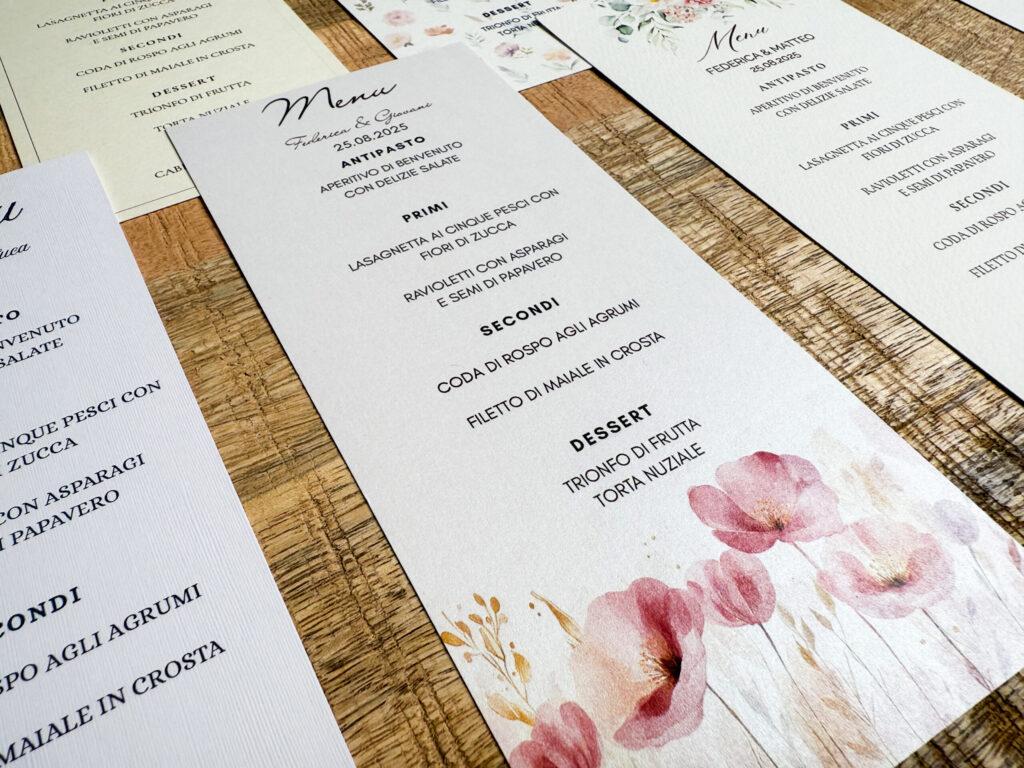 LASAGNETTA AI CINQUE PESCI CON
FIORI DI ZUCCA
RAVIOLETTI CON ASPARAGI
E SEMI DI PAPAVERO
SECONDI
CODA DI ROSPO AGLI AGRUMI
FILETTO DI MAIALE IN CROSTA
DESSERT
TRIONFO DI FRUTTA
TORTA NUZIALE
CAB
DESSERT
TRIONFO DI FRUTTA
TORTA
Menu
Federica & Giovani
25.08.2025
ANTIPASTO
APERITIVO DI BENVENUTO
CON DELIZIE SALATE
PRIMI
LASAGNETTA AI CINQUE PESCI CON
FIORI DI ZUCCA
RAVIOLETTI CON ASPARAGI
E SEMI DI PAPAVERO
SECONDI
CODA DI ROSPO AGLI AGRUMI
FILETTO DI MAIALE IN CROSTA
DESSERT
TRIONFO DI FRUTTA
TORTA NUZIALE
Menu
FEDERICA & MATTEO
25.08.2025
ANTIPASTO
APERITIVO DI BENVENUTO
CON DELIZIE SALATE
PRIMI
LASAGNETTA AI CINQUE PESCI CON
FIORI DI ZUCCA
RAVIOLETTI CON ASPARAGI
E SEMI DI PAPAVERO
SECONDI
CODA DI ROSPO AGLI
FILETTO DI
NVENUTO
SALATE
INQUE PESCI CON
ZUCCA
CON ASPARAGI
PAPAVERO
CONDI
SPO AGLI AGRUMI
MAIALE IN CROSTA